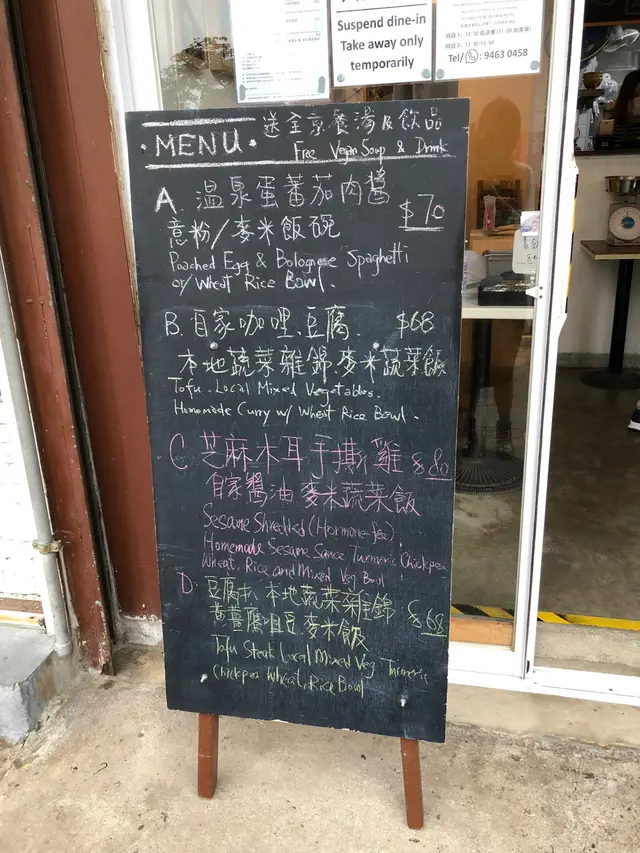 Suspend dine-in
Take away only
temporarily
Tel/ : 9463 0458
·MENU· 送全京餐湯及飲品
Free Vegan Soup & Drink
A. 温泉蛋蕃茄肉醬
意粉/麥米飯碗 $70
Poached Egg & Bolognese Spaghetti
or/ Wheat Rice Bowl.
B. 自家咖哩豆腐. $68
本地蔬菜雜錦麥米蔬菜飯
Tofu. Local Mixed Vegetables.
Homemade Curry w/ Wheat Rice Bowl.
C 芝麻木耳手撕雞 $80
自家醬油麥米蔬菜飯
Sesame Shredded (Hormone-fee)
Homemade Sesame Sauce Turmeric Chickpea
Wheat, Rice and Mixed Veg Bowl
D. 豆腐扒本地蔬菜雜錦 $68
黄薑鷹咀豆麥米飯
Tofu Steak Local Mixed Veg Turmeric
Chickpea Wheat, Rice Bowl